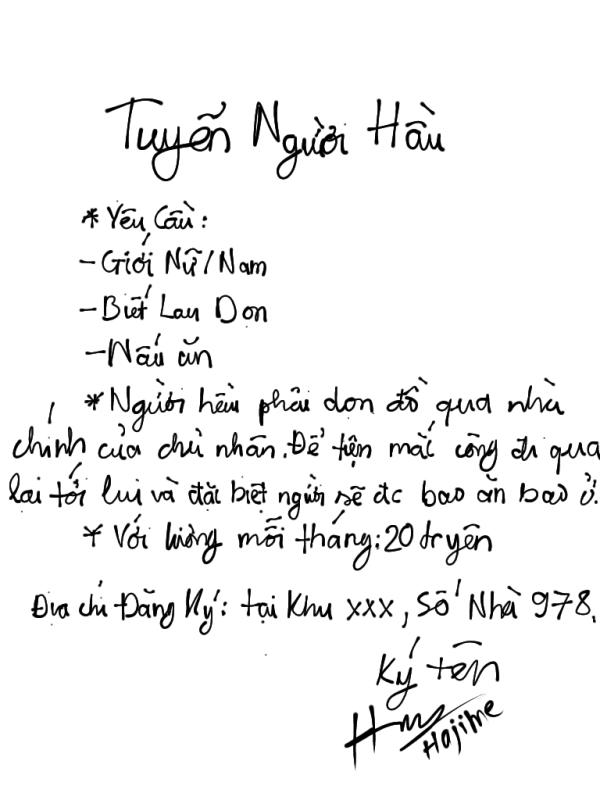 Tuyển Người Hầu
* Yêu Cầu:
- Giới Nữ/Nam
- Biết Lau Dọn
- Nấu ăn
* Người hầu phải dọn đồ qua nhà
chính của chủ nhân. Để tiện mất công đi qua
lại tới lui và đặt biệt người sẽ đc bao ăn bao ở.
* Với lương mỗi tháng: 20 tr yên
Địa chỉ Đăng Ký: tại Khu xxx, Số Nhà 978.
Ký tên
Hajime